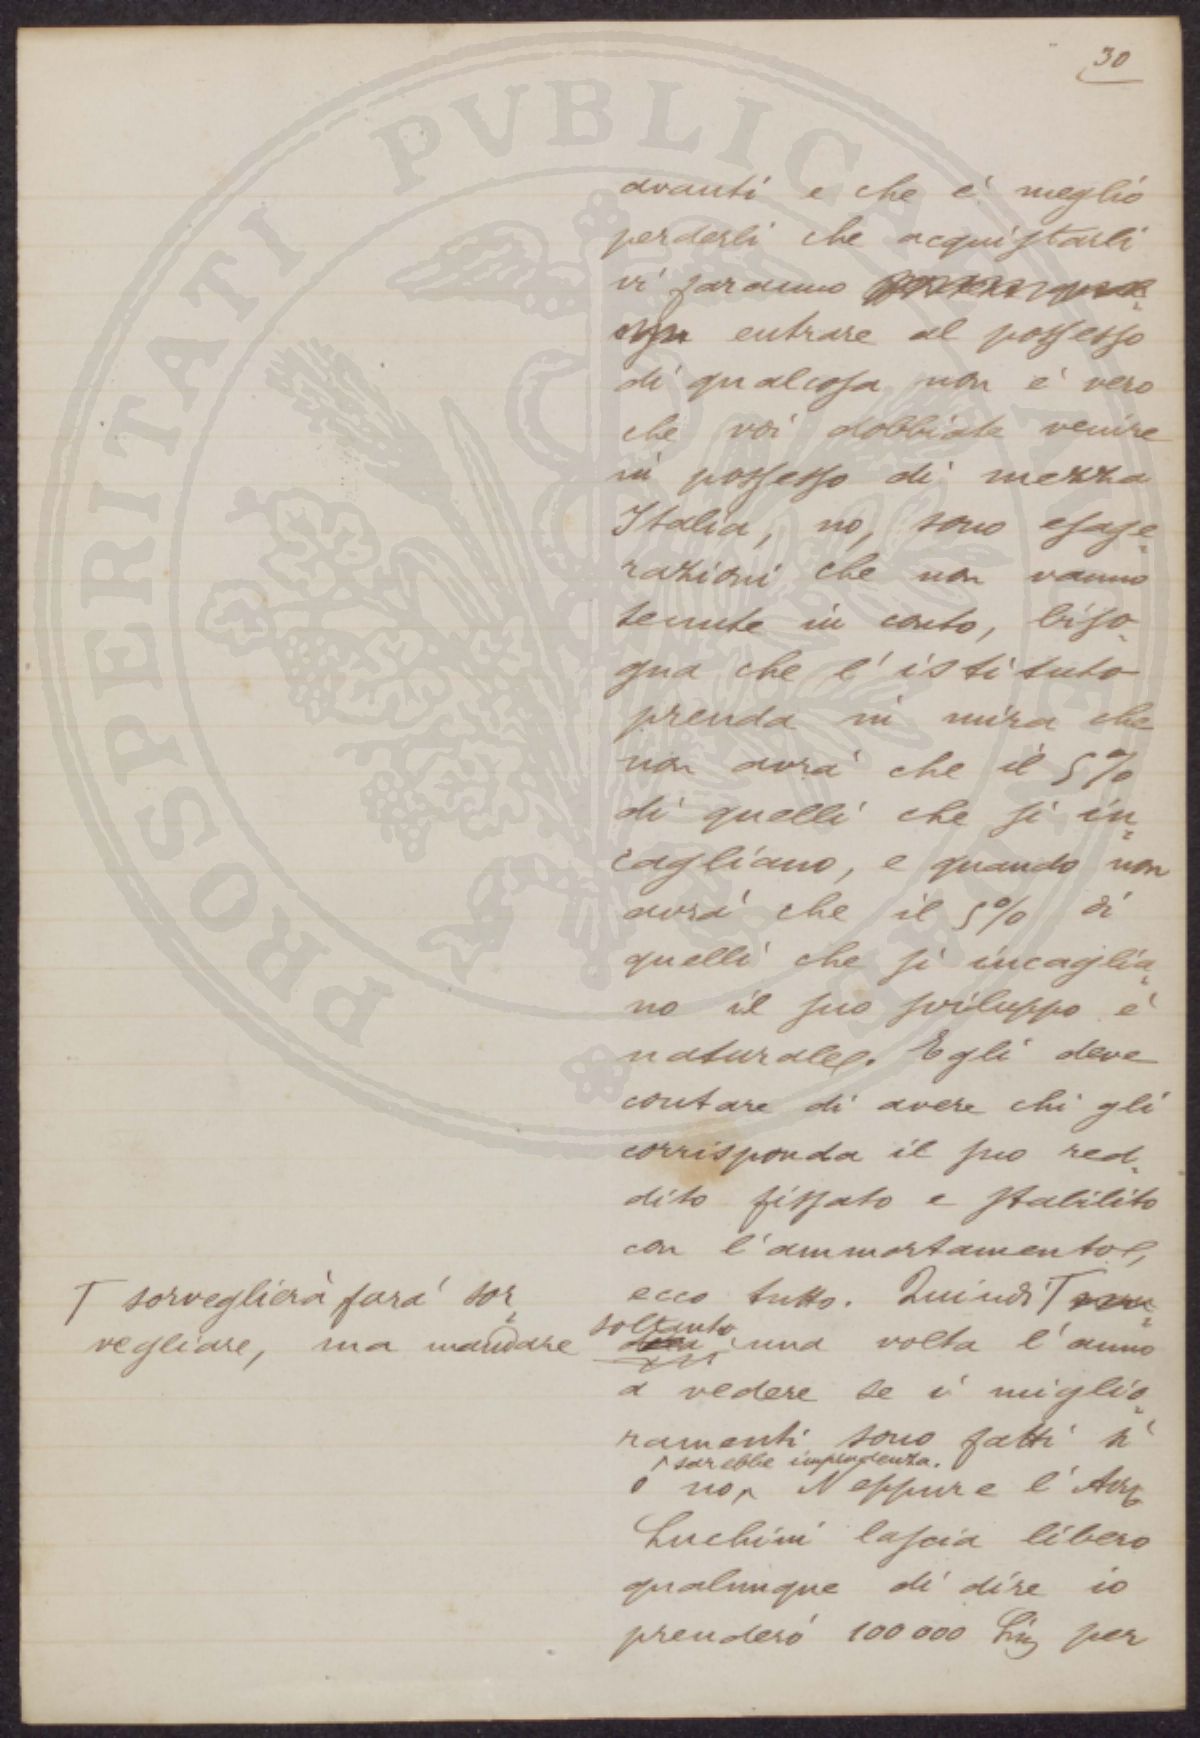 30
avanti e che è meglio
perderli che acquistarli
vi faranno
entrare al possesso
di qualcosa non è vero
che voi dobbiate venire
in possesso di mezza
Italia, no, sono esage-
razioni che non vanno
tenute in conto, biso-
gna che l'istituto
prenda in mira che
non avrà che il 5%
di quelli che si in-
cagliano, e quando non
avrà che il 5% di
quelli che si incaglia-
no il suo sviluppo è
naturale. Egli deve
contare di avere chi gli
corrisponda il suo red-
dito fissato e stabilito
con l'ammortamento,
ecco tutto. Quindi T
T sorveglierà farà sor-
vegliare, ma mandare
soltanto
una volta l'anno
a vedere se i miglio-
ramenti sono fatti sì
sarebbe imprudenza.
o no, Neppure l'
Luchini lascia libero
qualunque di dire io
prenderò 100 000 per
PROSPERITATI PVBLICAE